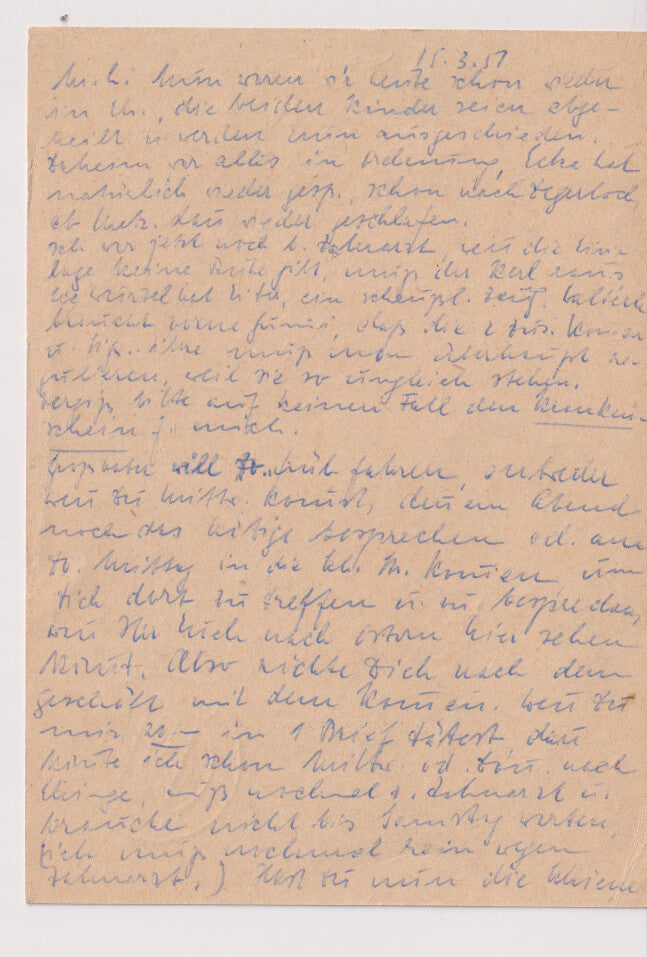 15.3.51
M. L. Nun waren wir heute schon wieder
in Th., die beiden Kinder seien abge-
heilt u. werden nun ausgeschieden.
Daheim war alles in Ordnung, Ecke hat
natürlich wieder gesp., schon nach Degerloch,
ab dann wieder geschlafen.
Ich war jetzt noch b. Zahnarzt, weil die Ein-
lage keine Ruhe gibt, muß der Kerl raus
die Wurzel hat Eiter, ein scheußl.
braucht vorne Gummi, daß die 2 zus. kommen
u. muß man überhaupt re-
gulieren, weil sie so ungleich stehen.
Vergiß bitte auf keinen Fall den Kranken-
schein f. mich.
Großvater will Do. früh fahren, entweder
wenn Du Mittw. kommst, denn am Abend
noch das Nötige besprechen od. am
Do. Mittag in die kommen um
Dich dort zu treffen u. zu besprechen,
wann Ihr Euch nach Ostern hier sehen
könnt. Also richte Dich nach dem
Geschäft mit dem Kommen. Wenn Du
mir 20.- in 1 Brief tätest dann
könnte ich schon Mittw. od. Don. nach
muß nochmal z. Zahnarzt u.
brauche nicht bis Samstag warten,
(ich muß nochmal rein wegen
Zahnarzt.) Hast Du nun die kleine